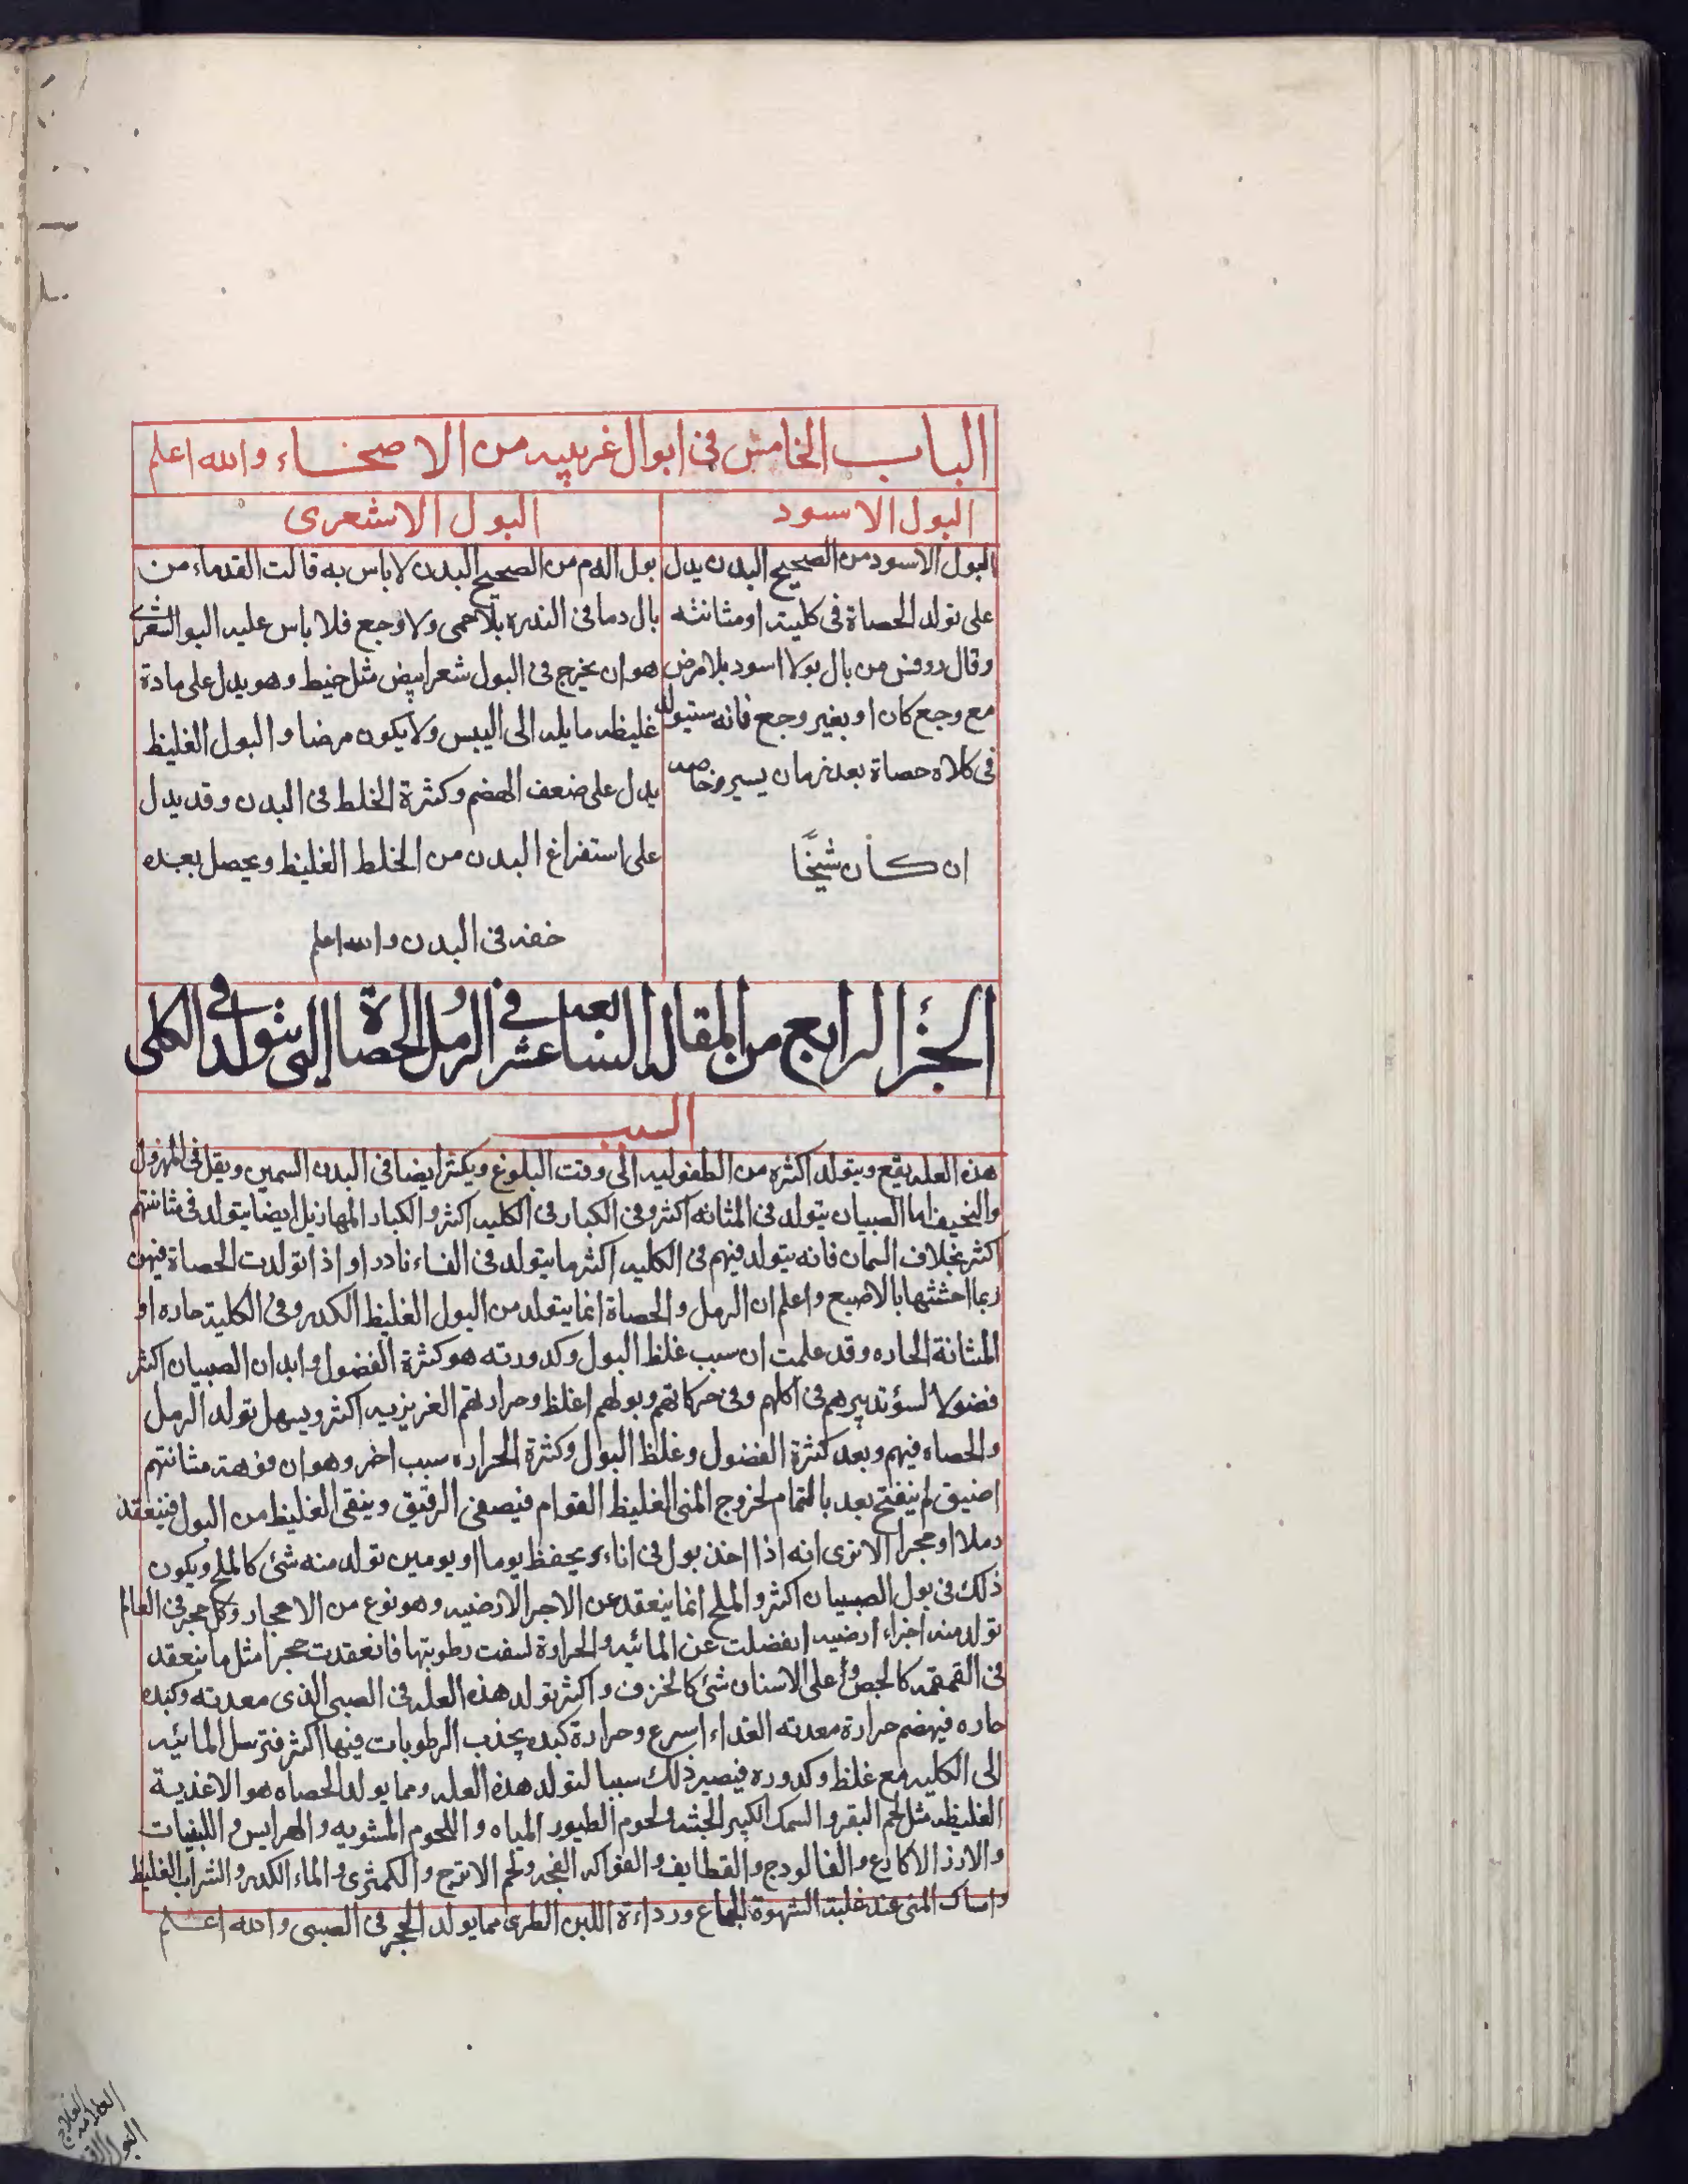 الباب الخامس فى ابوال غريبيه من الاصحاء والله اعلم
البول الاسود
البول الاسود من الصحيح البدن يدل
على تولد الحصاة فى كليته او مثانته
وقال روفس من بال بولا اسود بلا مرض
مع وجع كان او بغير وجع فانه ستيولد
فى كلاه حصاة بعد زمان يسير وخاصه
ان كان شيخًا
البول الاشعرى
بول الدم من الصحيح البدن لا باس به قالت القدماء من
بال دما فى الندره بلا حمى ولا وجع فلا باس عليه البول الشعرى
هو ان يخرج فى البول شعر ابيض مثل خيط وهو يدل على مادة
غليظه مايله الى اليبس ولا يكون مرضا والبول الغليظ
يدل على ضعف الهضم وكثرة الخلط فى البدن وقد يدل
على استفراغ البدن من الخلط الغليظ ويحصل بعبده
خفه فى البدن والله اعلم
الجزء الرابع من المقاله السابعه عشر فى الرمل والحصاة التى يتولد فى الكلى
السبب
هذه العله يقع ويتولد اكثره من الطفوليه الى وقت البلوغ ويكثر ايضا فى البدن السمين ويقل فى المهزول
والنحيف اما الصبيان يتولد فى المثانه اكثر وفى الكبار فى الكليه اكثر والكبار المهازيل ايضا يتولد فى مثانتهم
اكثر بخلاف السمان فانه يتولد فيهم فى الكليه اكثر ما يتولد فى النساء نادرا واذا تولدت الحصاة فيهن
ربما احثثها بالاصبع واعلم ان الرمل والحصاة انما يتولد من البول الغليظ الكدر وفى الكلية حاره او
المثانة الحاره وقد علمت ان سبب غلظ البول وكدورته هو كثرة الفضول وابدان الصبيان اكثر
فضولا لسؤ تدبيرهم فى اكلهم وفى حركاتهم وبولهم اغلظ وحرارتهم الغريزيه اكثر ويسهل تولد الرمل
والحصاه فيهم وبعد كثرة الفضول وغلظ البول وكثرة الحراره سبب اخر وهو ان فوهة مثانتهم
اضيق لم ينفتح بعد بالتمام لخروج المنى الغليظ القوام فيصفى الرقيق وينقى الغليظ من البول فينعقد
رملا او حجرا الا ترى انه اذا اخذ بول فى اناء ويحفظ يوما او يومين تولد منه شئ كالملح ويكون
ذلك فى بول الصبيان اكثر والملح انما ينعقد عن الاجر الارضيه وهو نوع من الاحجار وكل حجر فى العالم
تولد منه اجزاء ارضيه انفضلت عن المائيه والحرارة لسفت رطوبتها فانعقدت حجرا مثل ما ينعقد
فى القمقمه كالجص او على الاسنان شئ كالخزف واكثر تولد هذه العله فى الصبى الذى معدته وكبده
حاره فيهضم حرارة معدته الغداء اسرع وحرارة كبده يجذب الرطوبات فيها اكثر فترسل المائيه
الى الكليه مع غلظ وكدوره فيصير ذلك سببا لتولد هذه العله ومما يولد الحصاه هو الاغذية
الغليظه مثل لحم البقر والسمك الكبير الجثه ولحوم الطيور المياه واللحوم المشويه والهرايس واللبنيات
والارز الاكارع والفالودج والقطايف والفواكه الفجه ولحم الاترج والكمثرى والماء الكدر والشراب الغليظ
وامساك المنى عند غلبة الشهوة للجماع ورداءة اللبن الطرى مما يولد الحجر فى الصبى والله اعلم
العلامه العلاج